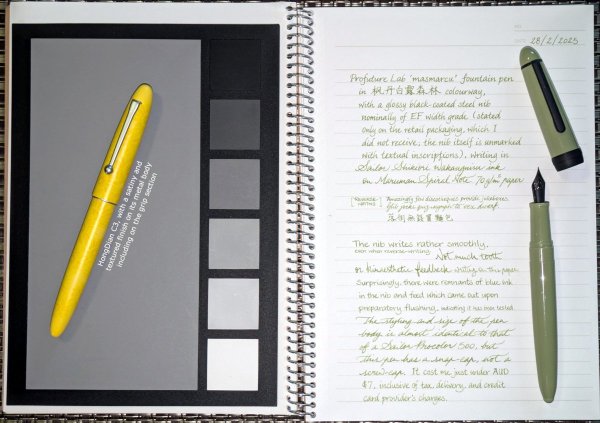 HongDian C3, with a satiny and
textured finish on its metal body
including on the grip section
NO.
DATE 28/2/2025
Profuture Lab 'masmarcu' fountain pen
in 枫丹白露森林 colourway,
with a glossy black-coated steel nib
nominally of EF width grade (stated
only on the retail packaging, which I
did not receive; the nib itself is unmarked
with textual inscriptions), writing in
Sailor Shikiori Wakauguisu ink
on Maruman Spiral Note 70 g/m² paper
REVERSE-WRITING
Amazingly few discotheques provide jukeboxes.
The nib writes rather smoothly,
even when reverse-writing. Not much tooth
or kinaesthetic feedback writing on this paper.
Surprisingly, there were remnants of blue ink
in the nib and feed which came out upon
preparatory flushing, indicating it has been tested.
The styling and size of the pen
body is almost identical to that
of a Sailor Procolor 500, but
this pen has a snap-cap, not a
screw-cap. It cost me just under AUD
$7, inclusive of tax, delivery, and credit
card provider's charges.